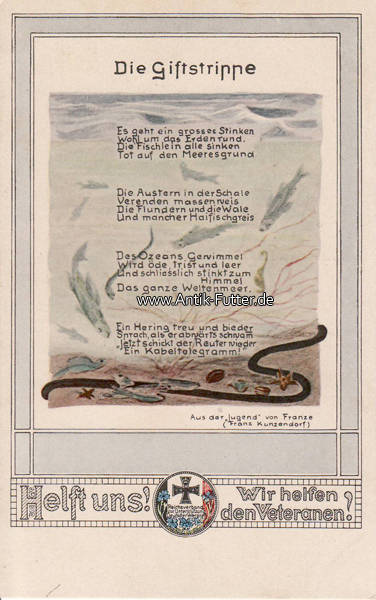 Die Giftstrippe
Es geht ein grosses Stinken
Wohl um das Erdenrund.
Die Fischlein alle sinken
Tot auf den Meeresgrund
Die Austern in der Schale
Verenden massenweis
Die Flundern und die Wale
Und mancher Haifischgreis
Des Ozeans Gewimmel
Wird öde, trist und leer
Und schliesslich stinkt zum
Himmel
Das ganze Weltenmeer.
www.Antik-Futter.de
Ein Hering treu und bieder
Sprach, als er abwärts schwamm
„Jetzt schickt der Reuter wieder
Ein Kabeltelegramm!"
Aus der „Jugend" von Franze
(Franz Kunzendorf)
Helft uns!
Reichsverband
zur Unterstützung
Wir helfen
den Veteranen!